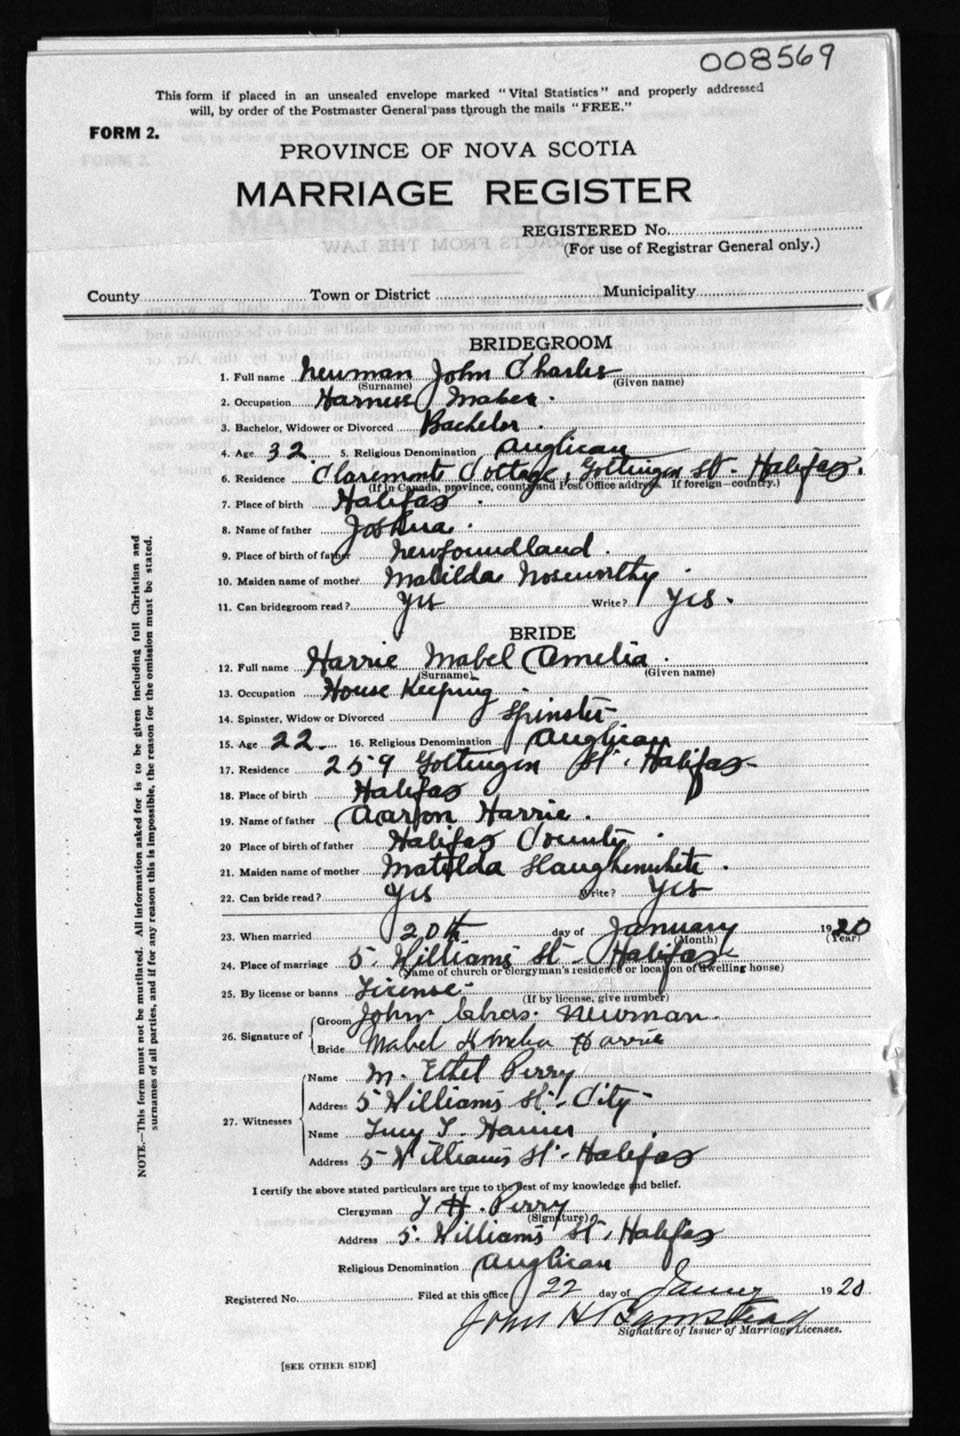 008569
This form if placed in an unsealed envelope marked "Vital Statistics" and properly addressed
will, by order of the Postmaster General pass through the mails "FREE."
FORM 2.
PROVINCE OF NOVA SCOTIA
MARRIAGE REGISTER
REGISTERED No.
(For use of Registrar General only.)
County Town or District Municipality
BRIDEGROOM
1. Full name Newman John Charles
(Surname) (Given name)
2. Occupation Harness Maker.
3. Bachelor, Widower or Divorced Bachelor.
4. Age 32. 5. Religious Denomination Anglican
6. Residence Claremont Cottage, Gottingen St. Halifax.
(If in Canada, province, county and Post Office address. If foreign—country.)
7. Place of birth Halifax.
8. Name of father Joshua.
9. Place of birth of father Newfoundland.
10. Maiden name of mother Matilda Noseworthy.
11. Can bridegroom read? Yes Write? Yes.
BRIDE
12. Full name Harrie Mabel Amelia.
(Surname) (Given name)
13. Occupation House Keeping.
14. Spinster, Widow or Divorced Spinster
15. Age 22. 16. Religious Denomination Anglican
17. Residence 259 Gottingen St. Halifax
18. Place of birth Halifax
19. Name of father Aaron Harrie.
20 Place of birth of father Halifax County.
21. Maiden name of mother Matilda Slaughenwhite.
22. Can bride read? Yes Write? Yes
23. When married 20th day of January 1920
(Month) (Year)
24. Place of marriage 5. Williams St. Halifax
(Name of church or clergyman's residence or location of dwelling house)
25. By license or banns License
(If by license, give number)
26. Signature of Groom John Chas. Newman.
Bride Mabel Amelia Harrie
27. Witnesses Name M. Ethel Perry
Address 5 Williams St. City
Name Lucy
Address 5 Williams St. Halifax
I certify the above stated particulars are true to the best of my knowledge and belief.
Clergyman H. Perry
(Signature)
Address 5. Williams St. Halifax
Religious Denomination Anglican
Registered No. Filed at this office 22 day of 1920
John H Barnstead
Signature of Issuer of Marriage Licenses.
[SEE OTHER SIDE]
NOTE.—This form must not be mutilated. All information asked for is to be given including full Christian and
surnames of all parties, and if for any reason this is impossible, the reason for the omission must be stated.